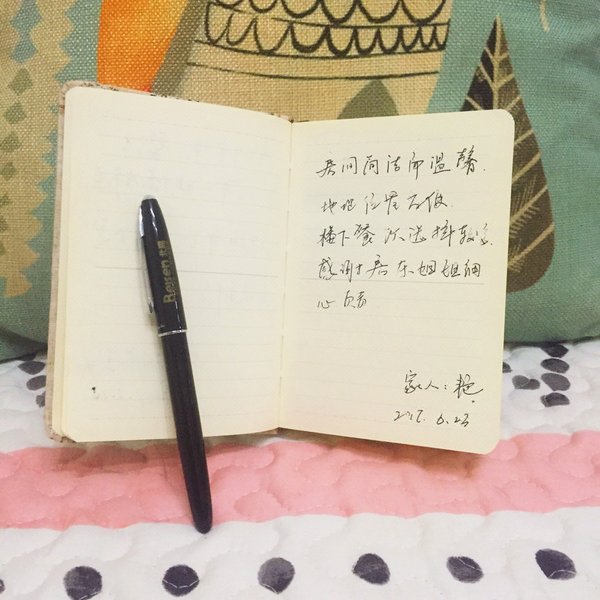 房间简洁而温馨.
地理位置方便.
楼下餐饮选择较多.
感谢房东姐姐细
心负责
家人: 艳
2017. 6. 23
Baven